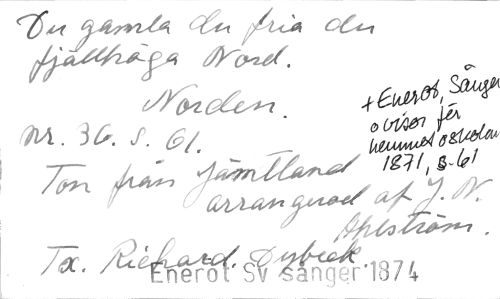 Du gamla du fria du
fjällhöga Nord.
Norden.
nr. 36. s. 61.
+ Enerot, Sånger
o visor för
hemmet o skolan
1871, s. 61
Ton från Jämtland
arrangerad af J. N.
Ahlström.
Tx. Richard Dybeck.
Enerot Sv sånger 1874